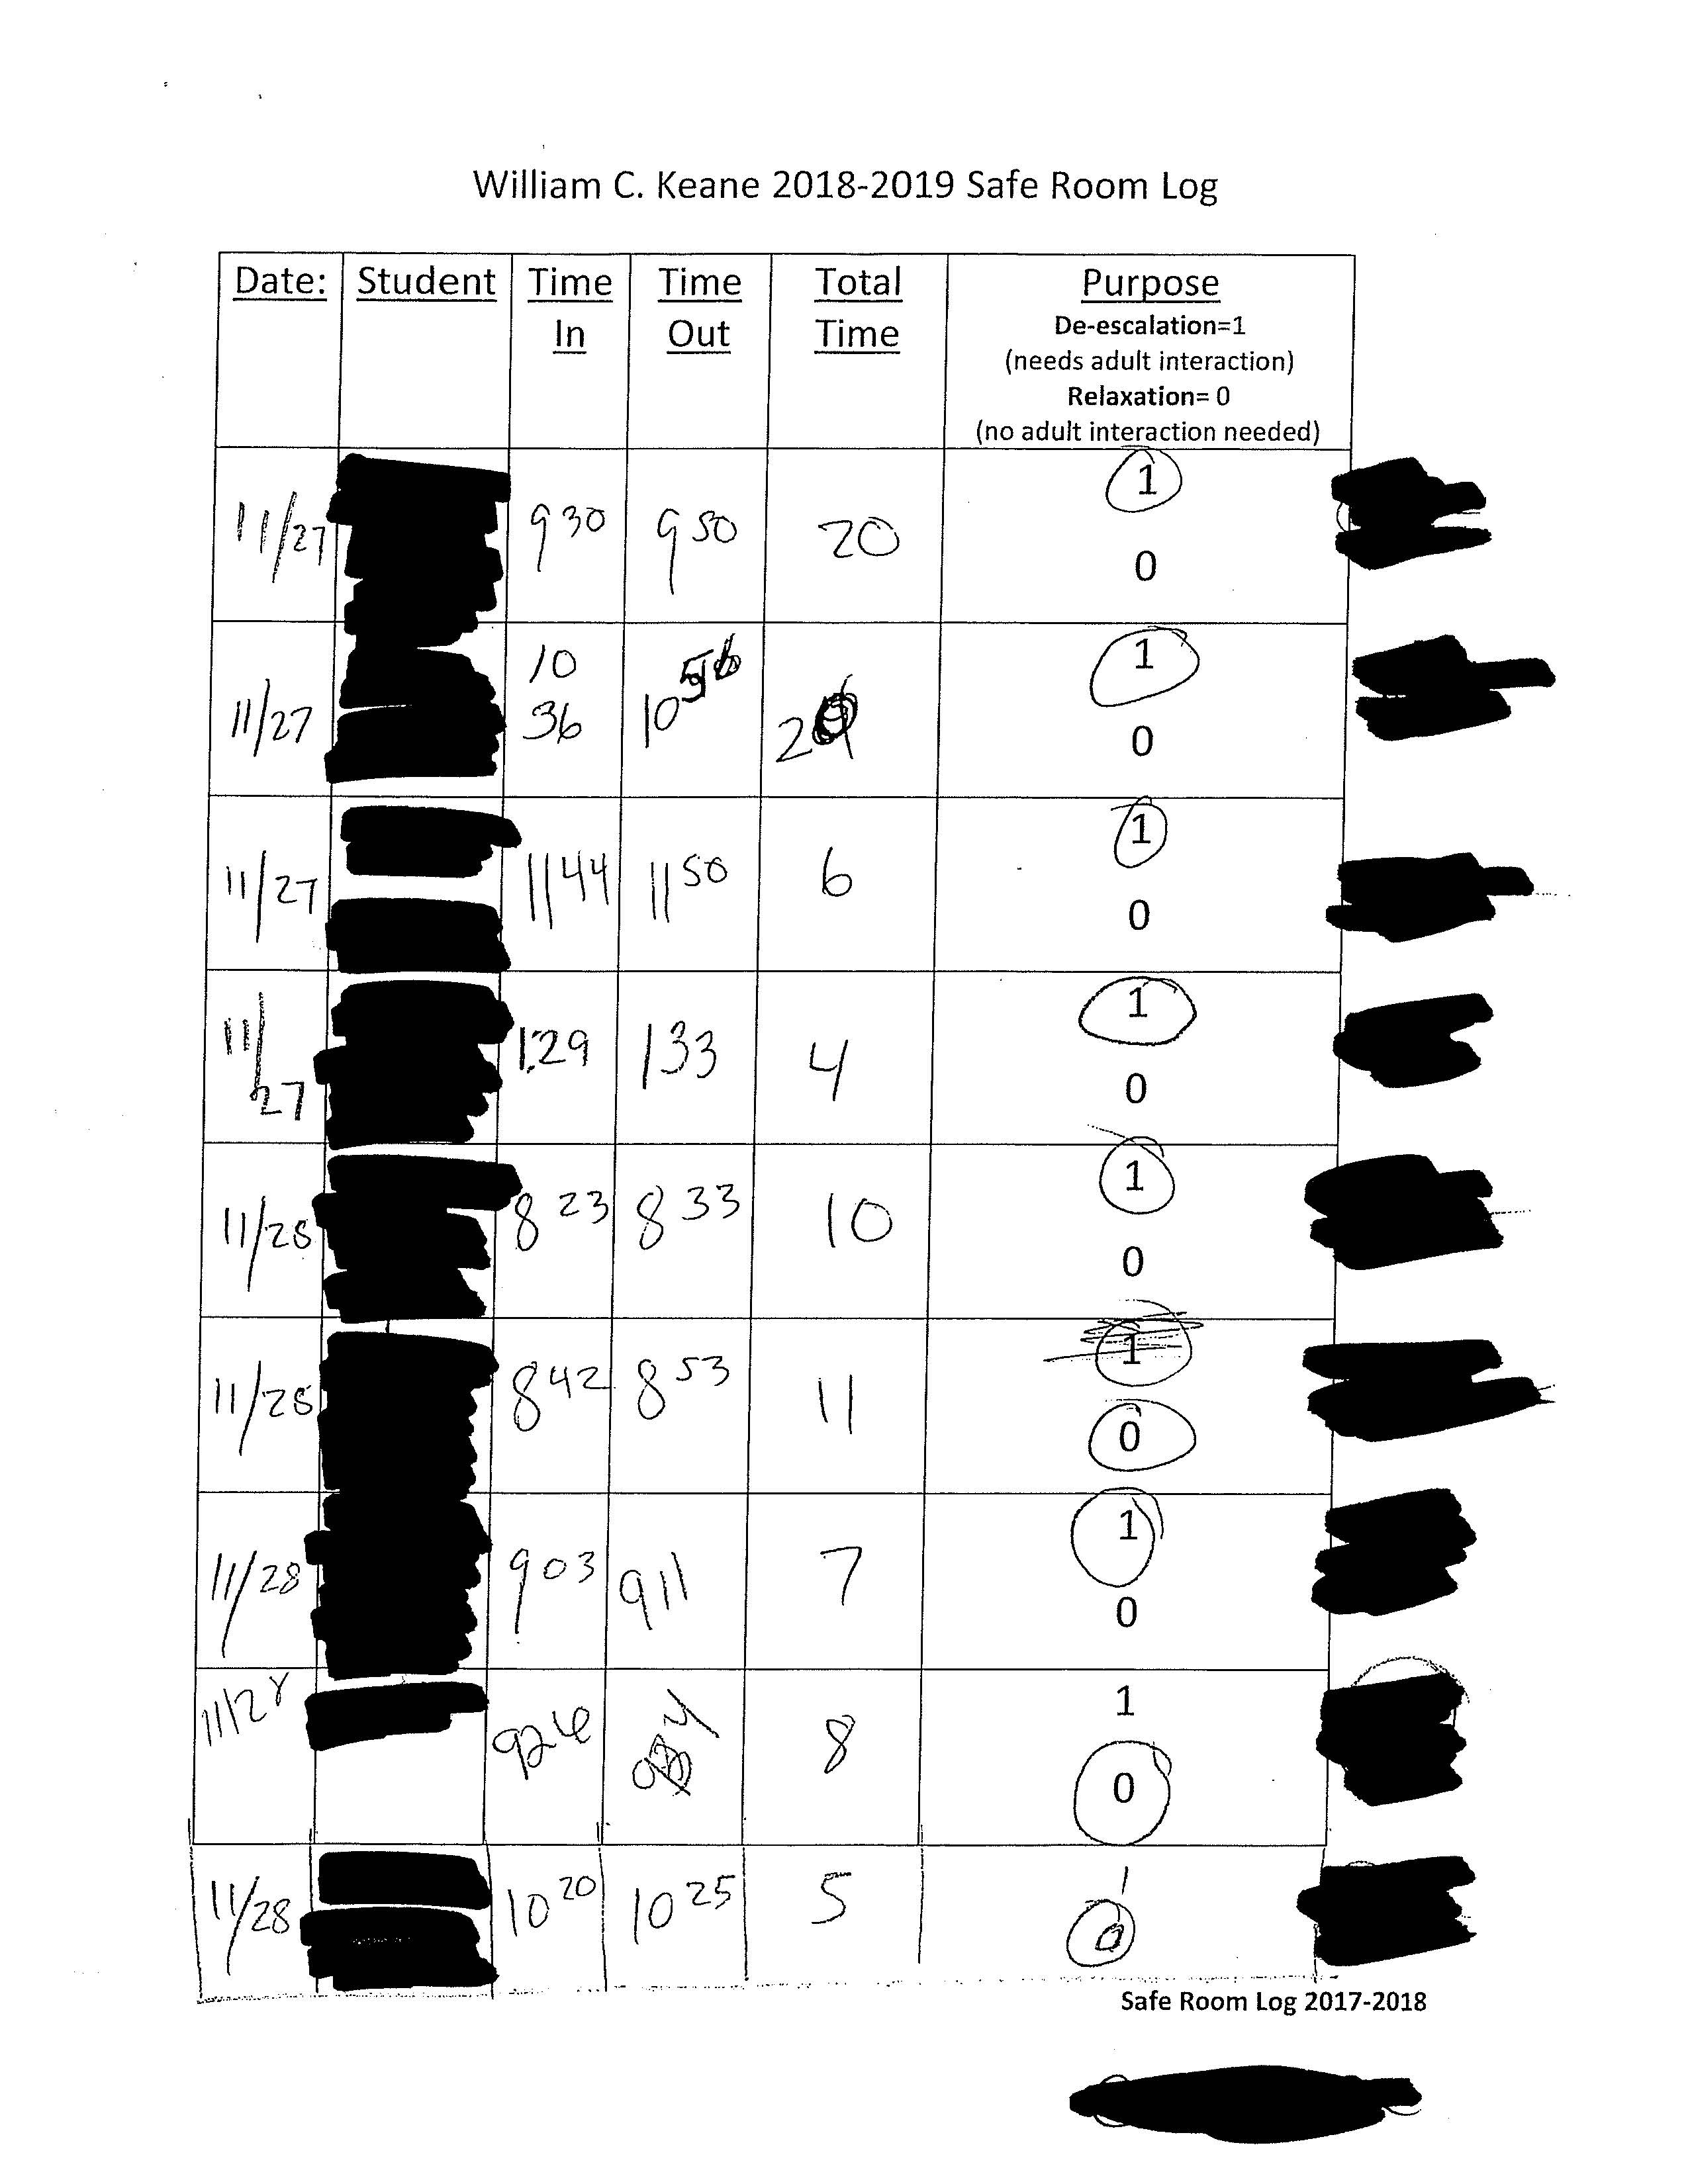 William C. Keane 2018-2019 Safe Room Log
Date: Student Time In Time Out Total Time Purpose
De-escalation=1
(needs adult interaction)
Relaxation= 0
(no adult interaction needed)
11/27 930 950 20 1
0
11/27 10 36 10 56 1
0
11/27 1144 1150 6 1
0
11/27 1:29 133 4 1
0
11/28 823 833 10 1
0
11/28 842 853 11 1
0
11/28 903 911 7 1
0
11/28 926 934 8 1
0
11/28 1020 1025 5 1
0
Safe Room Log 2017-2018